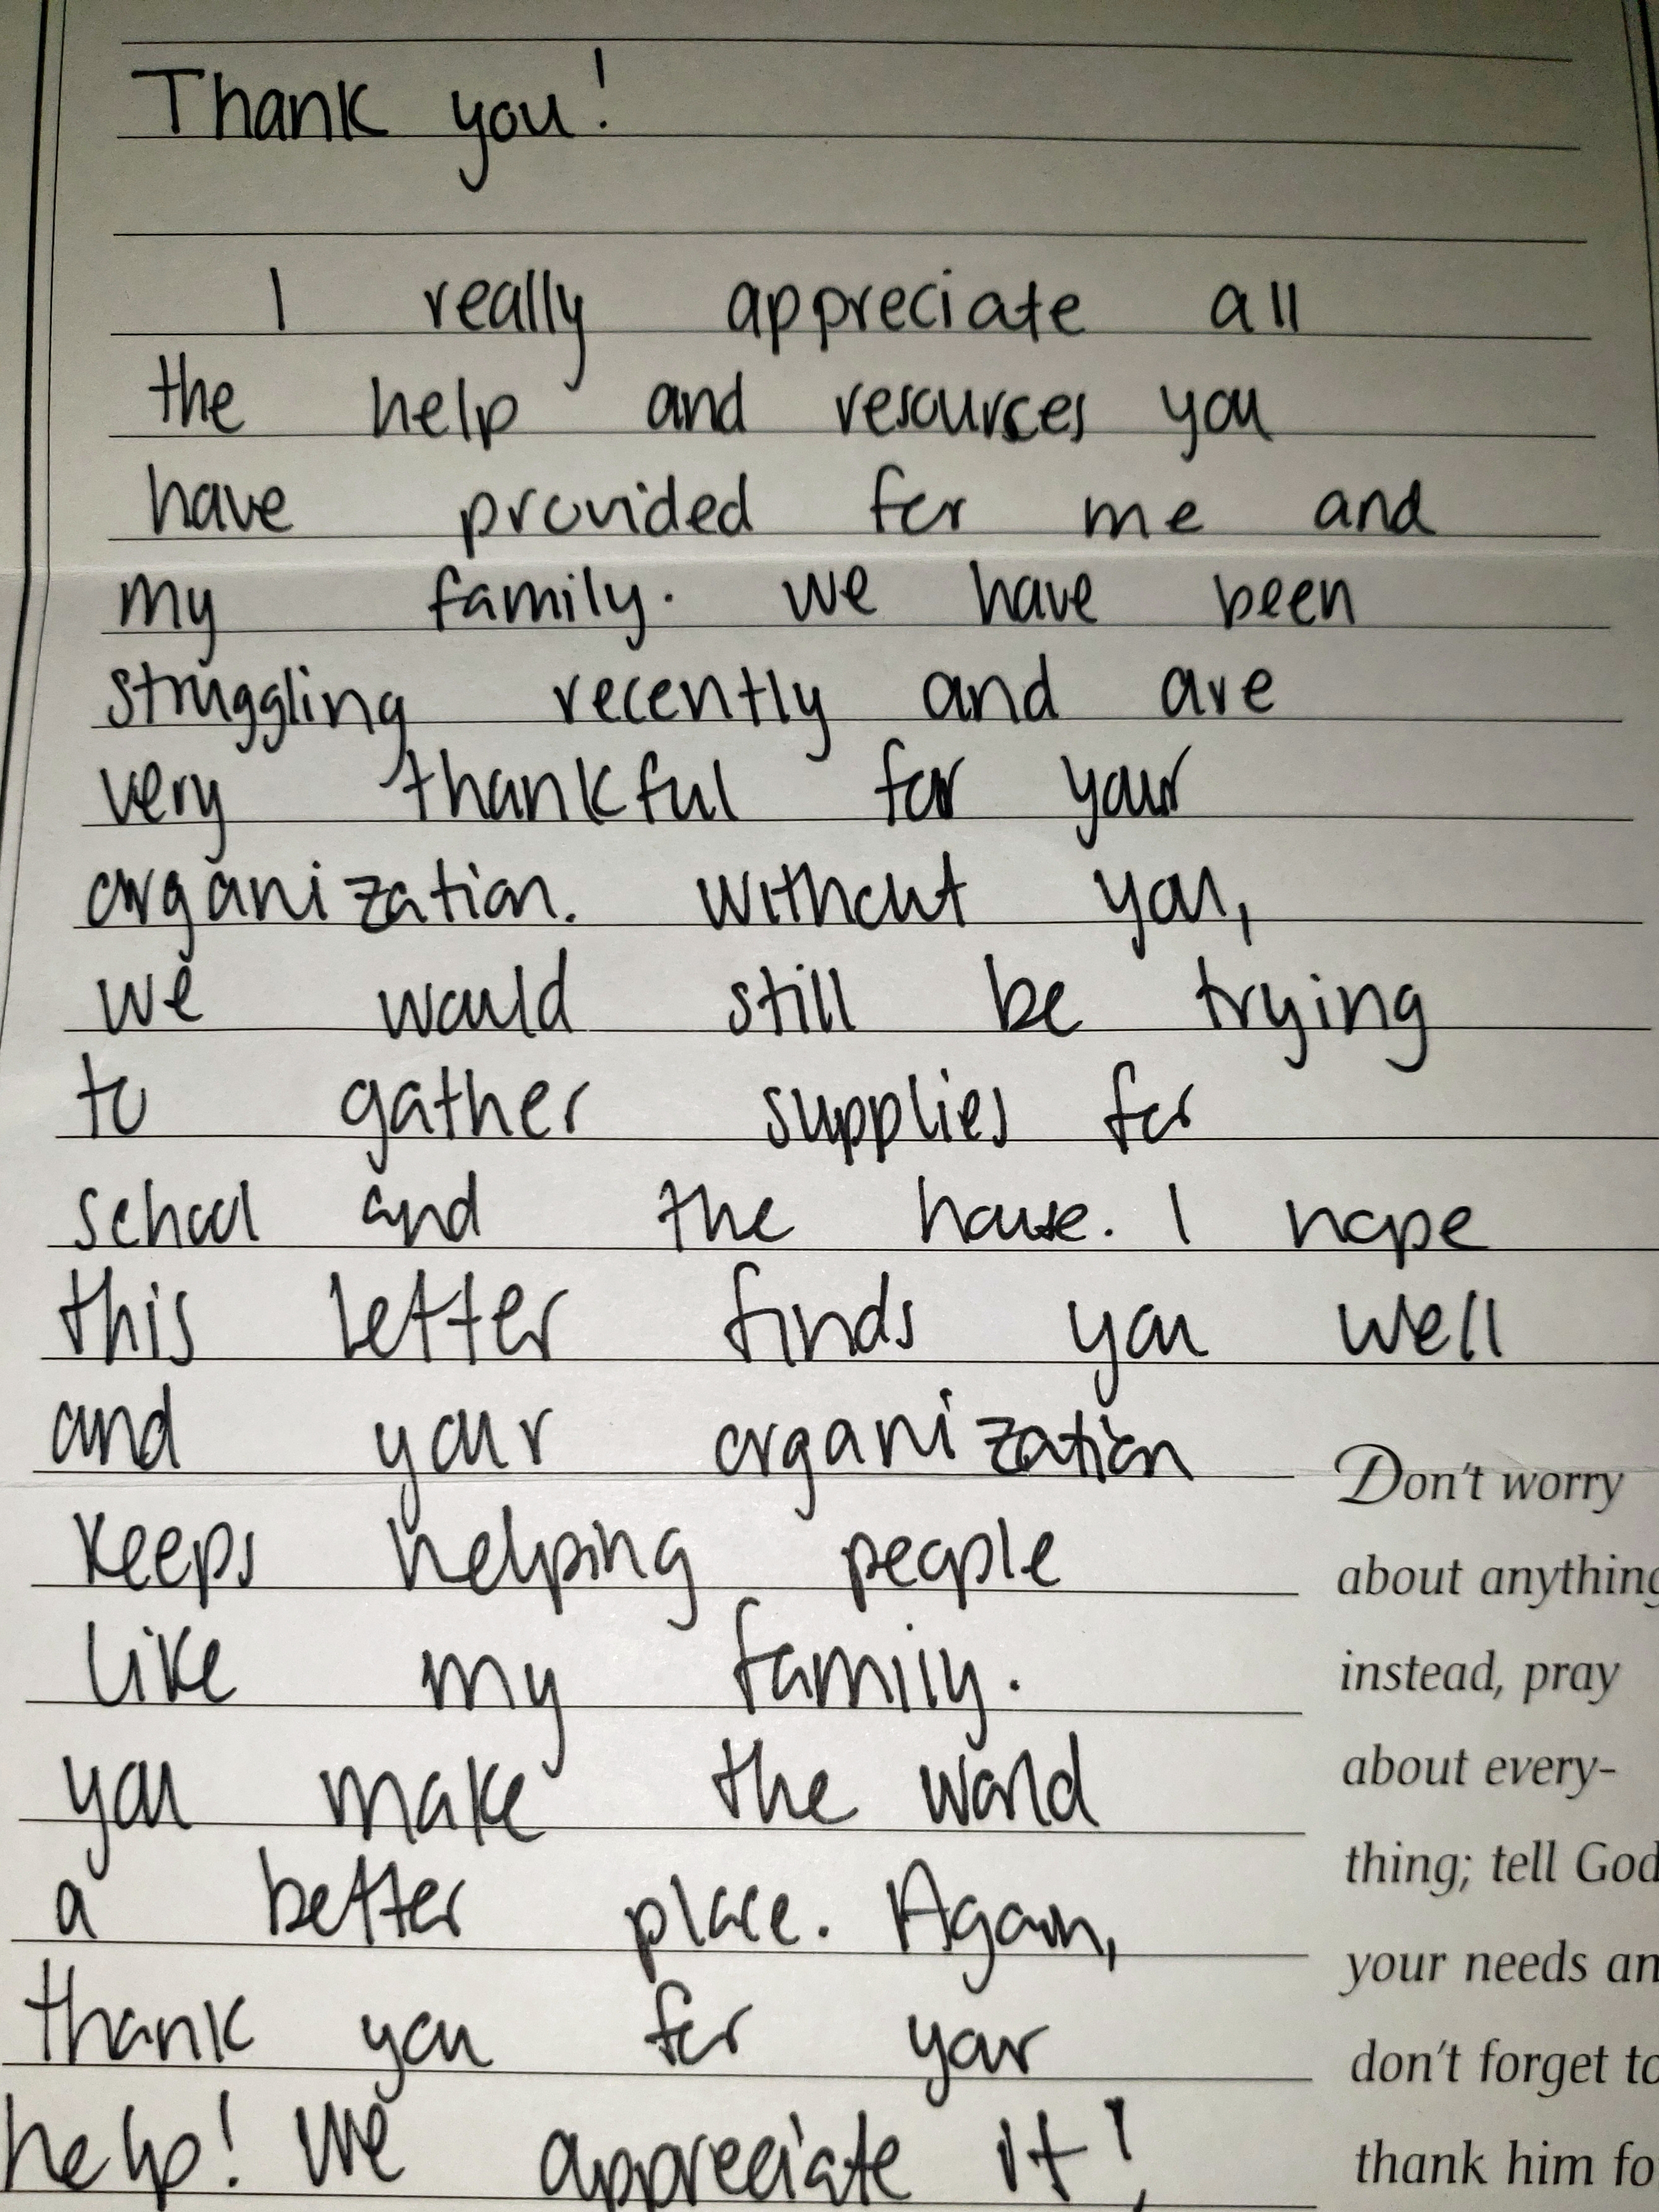 Thank you!
I really appreciate all
the help and resources you
have provided for me and
my family. We have been
struggling recently and are
very thankful for your
organization. Without you,
we would still be trying
to gather supplies for
school and the house. I hope
this letter finds you well
and your organization
keeps helping people
like my family.
you make the world
a better place. Again,
thank you for your
help! We appreciate it!
Don't worry
about anything
instead, pray
about every-
thing; tell God
your needs an
don't forget to
thank him fo